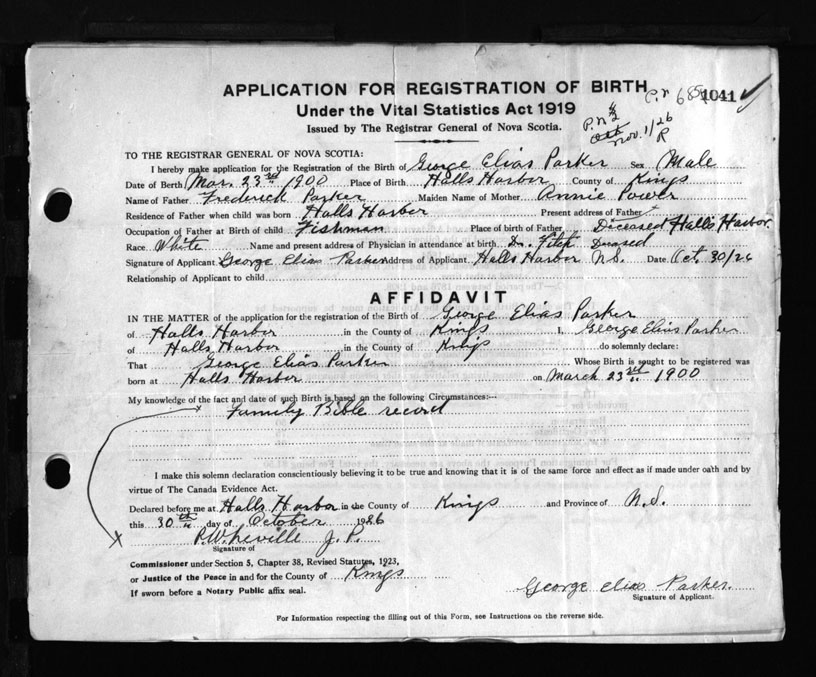 APPLICATION FOR REGISTRATION OF BIRTH
Under the Vital Statistics Act 1919
Issued by The Registrar General of Nova Scotia.
P.N 685
1041
P.N
Nov. 1/26
R
TO THE REGISTRAR GENERAL OF NOVA SCOTIA:
I hereby make application for the Registration of the Birth of George Elias Parker Sex Male
Date of Birth Mar. 23rd 1900 Place of Birth Halls Harbor County of Kings
Name of Father Frederick Parker Maiden Name of Mother Annie Power
Residence of Father when child was born Halls Harbor Present address of Father
Occupation of Father at Birth of child Fishman Place of birth of Father Deceased Halls Harbor
Race White Name and present address of Physician in attendance at birth Dr. Fitch Deceased
Signature of Applicant George Elias Parker Address of Applicant Halls Harbor N.S. Date Oct. 30/26
Relationship of Applicant to child
AFFIDAVIT
IN THE MATTER of the application for the registration of the Birth of George Elias Parker
of Halls Harbor in the County of Kings I, George Elias Parker
of Halls Harbor in the County of Kings do solemnly declare:
That George Elias Parker Whose Birth is sought to be registered was
born at Halls Harbor on March 23rd 1900
My knowledge of the fact and date of such Birth is based on the following Circumstances:—
Family Bible record
I make this solemn declaration conscientiously believing it to be true and knowing that it is of the same force and effect as if made under oath and by
virtue of The Canada Evidence Act.
Declared before me at Halls Harbor in the County of Kings and Province of N.S.
this 30th day of October 1926
P.W. Neville J.P.
Signature of
Commissioner under Section 5, Chapter 38, Revised Statutes, 1923,
or Justice of the Peace in and for the County of Kings
If sworn before a Notary Public affix seal.
George Elias Parker
Signature of Applicant.
For Information respecting the filling out of this Form, see Instructions on the reverse side.